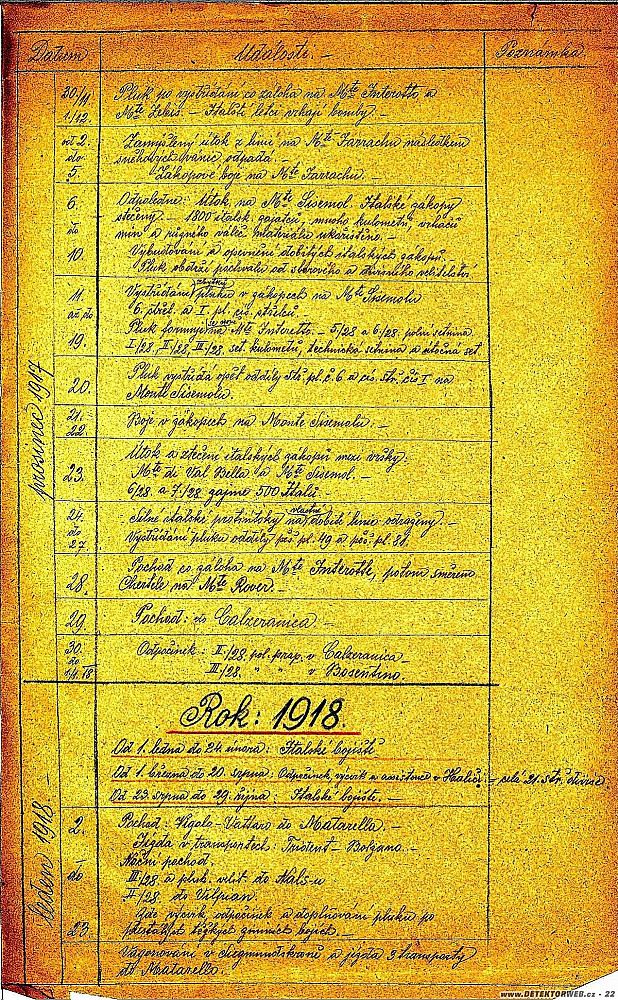 Datum Události. – Poznámka
prosinec 1917
30/11 Pluk po vystřídání co záloha na Mte Interotto a
1/12. Mte Zebio. – Italští letci vrhají bomby –
od 2. Zamýšlený útok z linie na Mte Farrachu následkem
do sněhových vánic odpadá. –
5. Zákopové boje na Mte Farrachu. –
6. Odpoledne: Útok na Mte Sisemol. Italské zákopy
stečeny. – 1800 italsk. zajatců, mnoho kulometů, vrhačů
do min a různého váleč. materiálu ukořistěno. –
10. Vybudování a opevnění dobitých italských zákopů. –
Pluk obdržel pochvalu od sborového a divisního velitelství.
11. Vystřídání pluku v zákopech na Mte Sisemolu
až do 6. střel. a I. pl. cís. střelců. –
Pluk formuje na Mte Interotto – 5/28 a 6/28. polní setnina
19. I/28, II/28, III/28. set. kulometů, technická setnina a útočná set.
20. Pluk vystřídá opět oddíly stř. pl. č. 6 a cís. stř. čís I na
Monte Sisemolu.
21. Boje v zákopech na Monte Sisemolu. –
22.
Útok a ztečení italských zákopů mezi vršky:
23. Mte di Val Bella a Mte Sisemol. –
6/28. a 7/28. zajme 500 Italů. –
24. Silné italské protiútoky na dobité linie odraženy. –
do
27. Vystřídání pluku oddíly pěš. pl. 49 a pěš. pl. 88.
Pochod co záloha na Mte Interotto, potom směrem
28. na Mte Rover. –
29. Pochod: do Calzeranica –
30. Odpočinek: II./28. pol. prap. v Calzeranica –
do III/28. " " v Bosentino.
1/1. 18
Rok: 1918.
Od 1. ledna do 24. února: Italské bojiště
Od 1. března do 20. srpna: Odpočinek, výcvik a assistence v Haliči: – celá 21. stř. divise
Od 23. srpna do 29. října: Italské bojiště. –
leden 1918 –
2. Pochod: Vigolo-Vattaro do Matarella. –
Jízda v transportech: Trident – Bolzano. –
– Noční pochod.
do III/28 a pluk. velit. do Nals-u
II/28. do Vilpian.
Zde výcvik, odpočinek a doplňování pluku po
23. těžkých zimních bojích. –
Vagonování v Siegmundskroně a jízda 3 transporty
do Matarello.
www.DETEKTORWEB.cz - 22